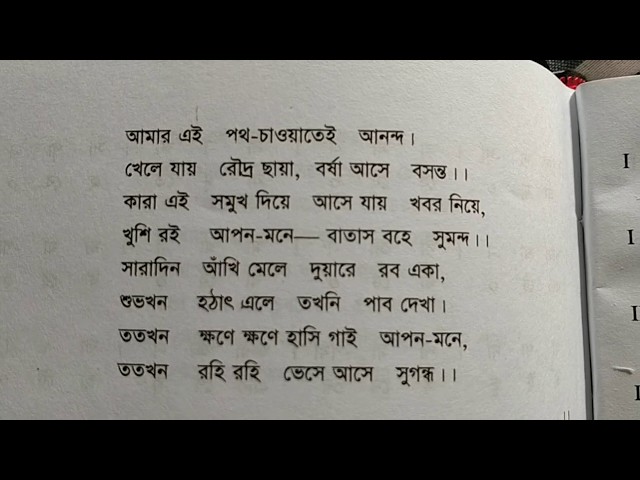 আমার এই পথ-চাওয়াতেই আনন্দ।
খেলে যায় রৌদ্র ছায়া, বর্ষা আসে বসন্ত।।
কারা এই সমুখ দিয়ে আসে যায় খবর নিয়ে,
খুশি রই আপন-মনে— বাতাস বহে সুমন্দ।।
সারাদিন আঁখি মেলে দুয়ারে রব একা,
শুভখন হঠাৎ এলে তখনি পাব দেখা।
ততখন ক্ষণে ক্ষণে হাসি গাই আপন-মনে,
ততখন রহি রহি ভেসে আসে সুগন্ধ।।